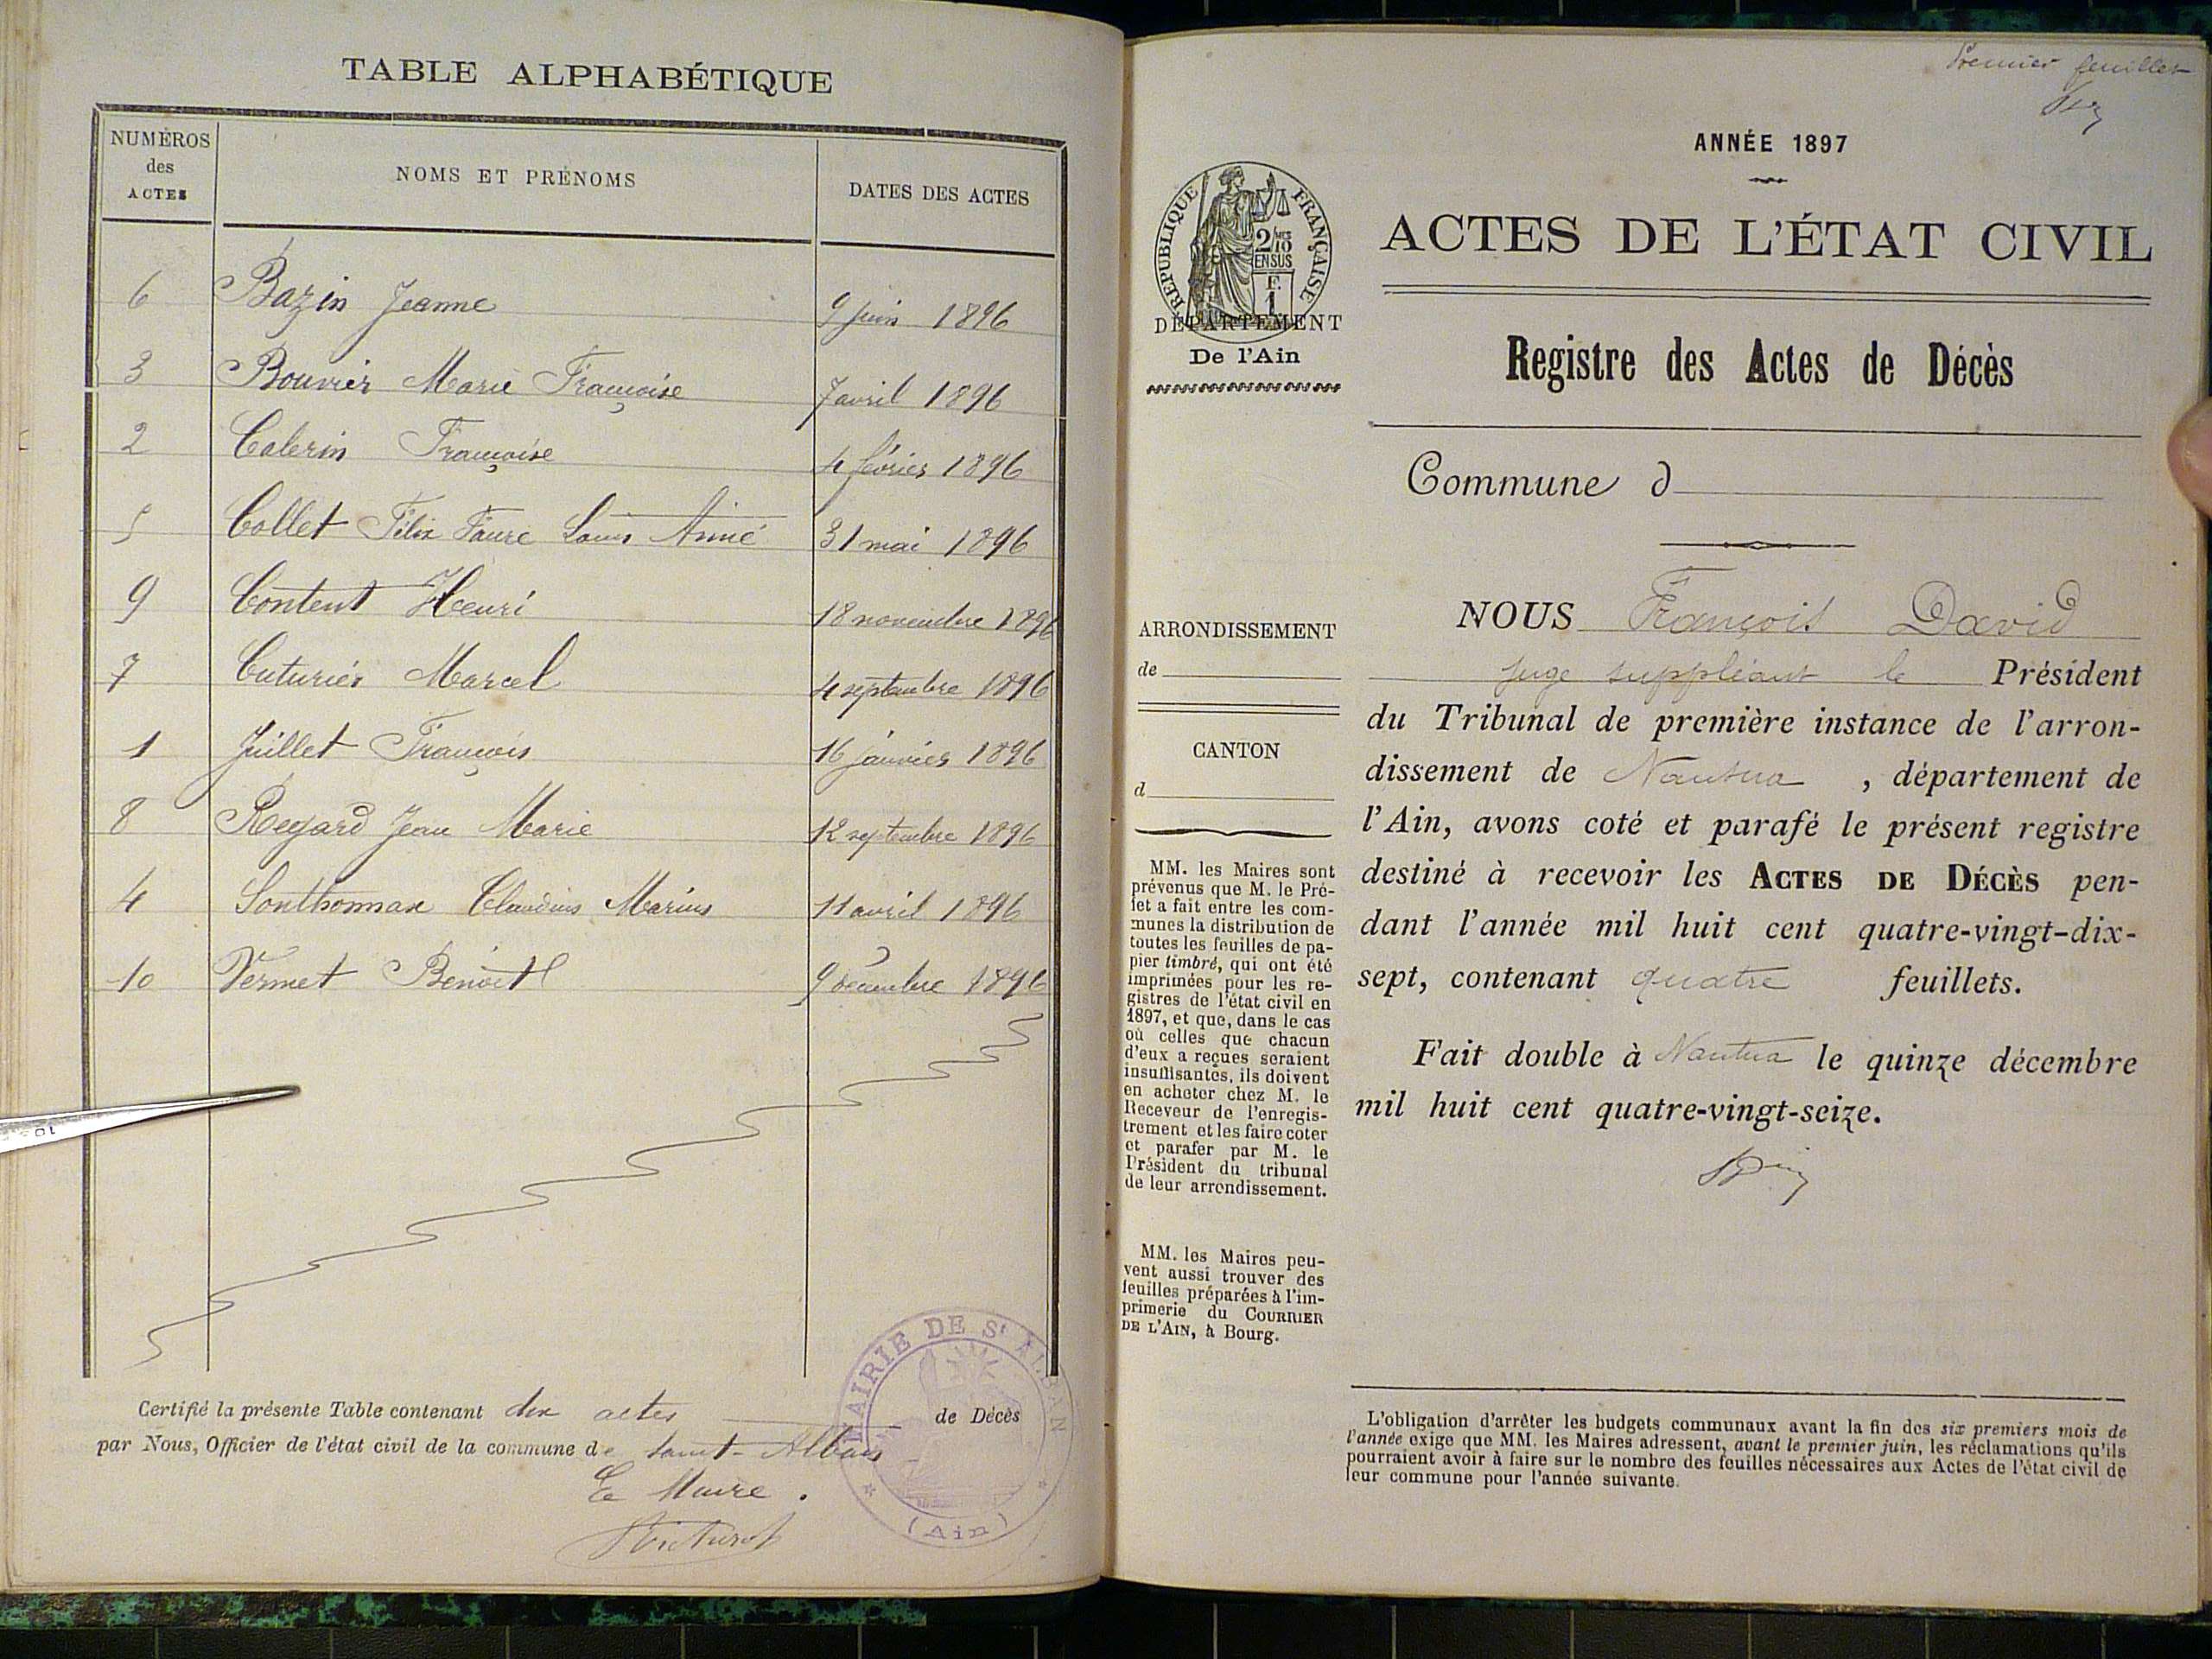 TABLE ALPHABÉTIQUE
NUMÉROS
des
ACTES
NOMS ET PRÉNOMS
DATES DES ACTES
6 Bazin Jeanne 9 juin 1896
3 Bouvier Marie Françoise 7 avril 1896
2 Calerin Françoise 4 février 1896
5 Collet Félix Faure Louis Aimé 31 mai 1896
9 Content Henri 18 novembre 1896
7 Cuturier Marcel 4 septembre 1896
1 Juillet François 16 janvier 1896
8 Regard Jean Marie 12 septembre 1896
4 Sonthonnax Claudius Marius 11 avril 1896
10 Vermet Benoit 9 décembre 1896
Certifié la présente Table contenant dix actes de Décès
par Nous, Officier de l'état civil de la commune de Saint-Alban
Le Maire.
MAIRIE DE St ALBAN
(Ain)
Premier feuillet
ANNÉE 1897
RÉPUBLIQUE FRANÇAISE
2/10
EN SUS
F.
1
DÉPARTEMENT
De l'Ain
ACTES DE L'ÉTAT CIVIL
Registre des Actes de Décès
Commune d
ARRONDISSEMENT
de
CANTON
d
MM. les Maires sont
prévenus que M. le Pré-
fet a fait entre les com-
munes la distribution de
toutes les feuilles de pa-
pier timbré, qui ont été
imprimées pour les re-
gistres de l'état civil en
1897, et que, dans le cas
où celles que chacun
d'eux a reçues seraient
insuffisantes, ils doivent
en acheter chez M. le
Receveur de l'enregis-
trement et les faire coter
et parafer par M. le
Président du tribunal
de leur arrondissement.
MM. les Maires peu-
vent aussi trouver des
feuilles préparées à l'im-
primerie du COURRIER
DE L'AIN, à Bourg.
NOUS François David
juge suppléant le Président
du Tribunal de première instance de l'arron-
dissement de Nantua , département de
l'Ain, avons coté et parafé le présent registre
destiné à recevoir les ACTES DE DÉCÈS pen-
dant l'année mil huit cent quatre-vingt-dix-
sept, contenant quatre feuillets.
Fait double à Nantua le quinze décembre
mil huit cent quatre-vingt-seize.
L'obligation d'arrêter les budgets communaux avant la fin des six premiers mois de
l'année exige que MM. les Maires adressent, avant le premier juin, les réclamations qu'ils
pourraient avoir à faire sur le nombre des feuilles nécessaires aux Actes de l'état civil de
leur commune pour l'année suivante.